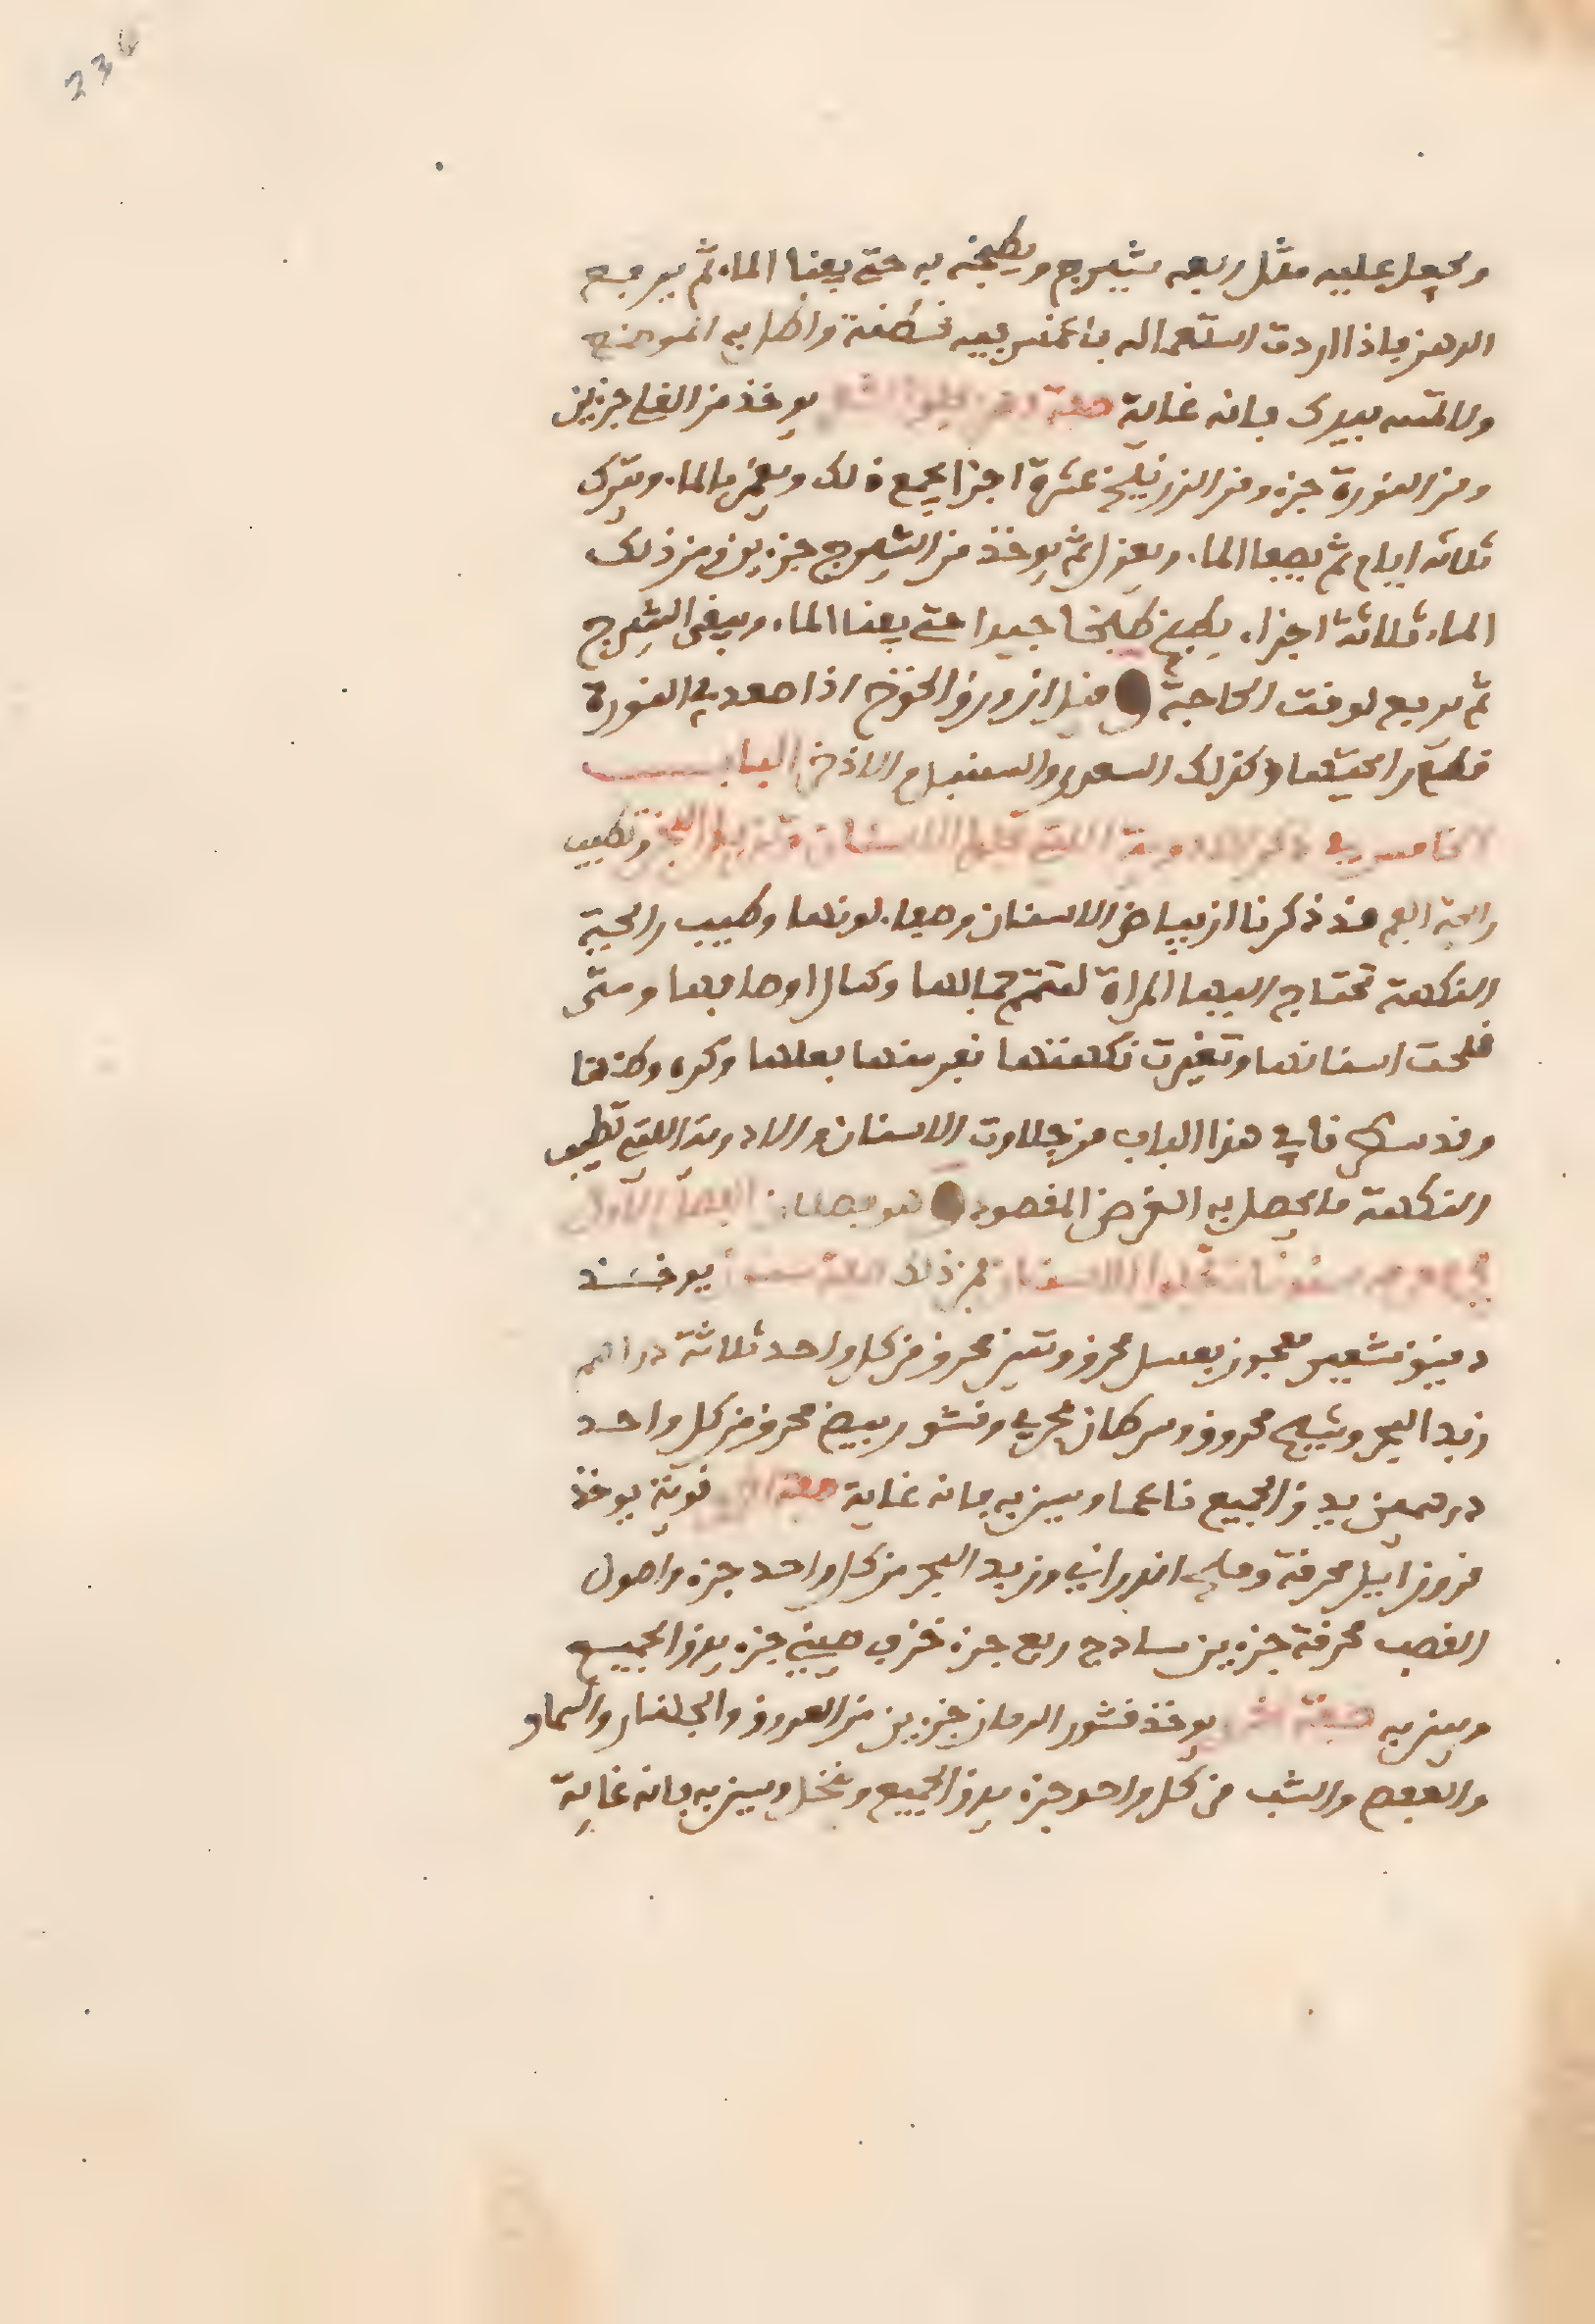 234
ويجعل عليه مثل ربعه شيرج ويطبخه به حتى يفنا الماء ثم يرفع
الدهن فاذا اردت استعماله فاغمس فيه قطنة واطل به الموضع
ولا تمسه بيدك فانه غاية صفة دهن يحلق الشعر يوخذ من القلى جزين
ومن النورة جزء ومن الزرنيخ عشرة اجزا يجمع ذلك ويغمر بالماء ويترك
ثلاثه ايام ثم يصفا الماء ويعزل ثم يوخذ من الشيرج جزين ومن ذلك
الماء ثلاثة اجزاء يطبخ طبخا جيدا حتى يفنا الماء ويبقى الشيرج
ثم يرفع لوقت الحاجة قيل ان ورق الخوخ اذا صعد في النورة
قطع رايحتها وكذلك السعد والسنبل والاذخر البـاب
الخامس في ذكر الادوية التي تجلوا الاسنان وتزيل البخر وتطيب
رايحة الفم قد ذكرنا ان بياض الاسنان وصفاء لونها وطيب رايحة
النكهة تحتاج اليها المراة لتتم جمالها وكمال اوصافها ومتى
قلحت اسنانها وتغيرت نكهتها نفر منها بعلها وكره وطنها
وقد سقنا في هذا الباب من جلاوت الاسنان والادوية التي تطيب
النكهة ما يحصل به الغرض المقصود وهو فصلان الفصل الاول
في سنونات تجلوا الاسنان فمن ذلك صفة سنون يوخـذ
دقيق شعير معجون بعسل محرق وتين محرق من كل واحد ثلاثة دراهم
زبد البحر وشيح محروق وسرطان بحري وقشور بيض محرق من كل واحـد
درهمين يدق الجميع ناعما ويستن به فانه غاية صفة اخرى قوية يوخذ
قرون ايل محرقة وملح اندراني وزبد البحر من كل واحد جزء واصول
القصب محرقة جزين ساذج ربع جزء خزف صيني جزء يدق الجميع
ويستن به صفة اخرى يوخذ قشور الرمان جزين من العروق والجلنار والسماق
والعفص والشب من كل واحد جزء يدق الجميع وينخل ويستن به فانه غاية